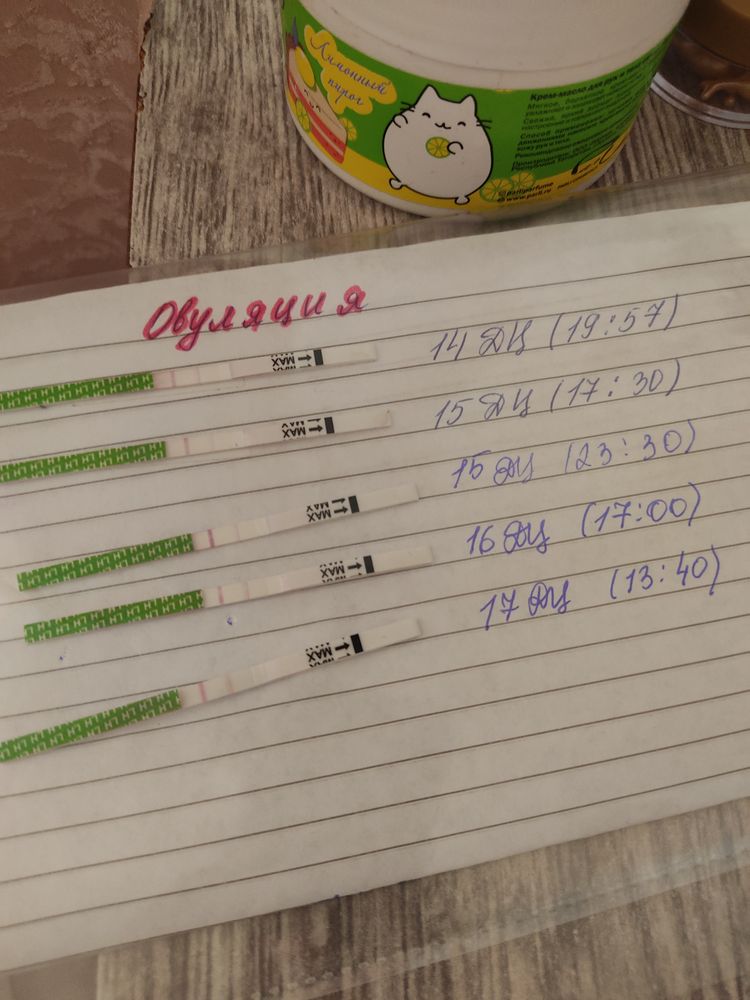 Лимонный
пирог
Крем-масло для рук и
Мягкое,
Способ
Овуляция
14 ДЦ (19:57)
MAX
15 ДЦ (17:30)
MAX
15 ДЦ (23:30)
MAX
16 ДЦ (17:00)
MAX
17 ДЦ (13:40)
MAX